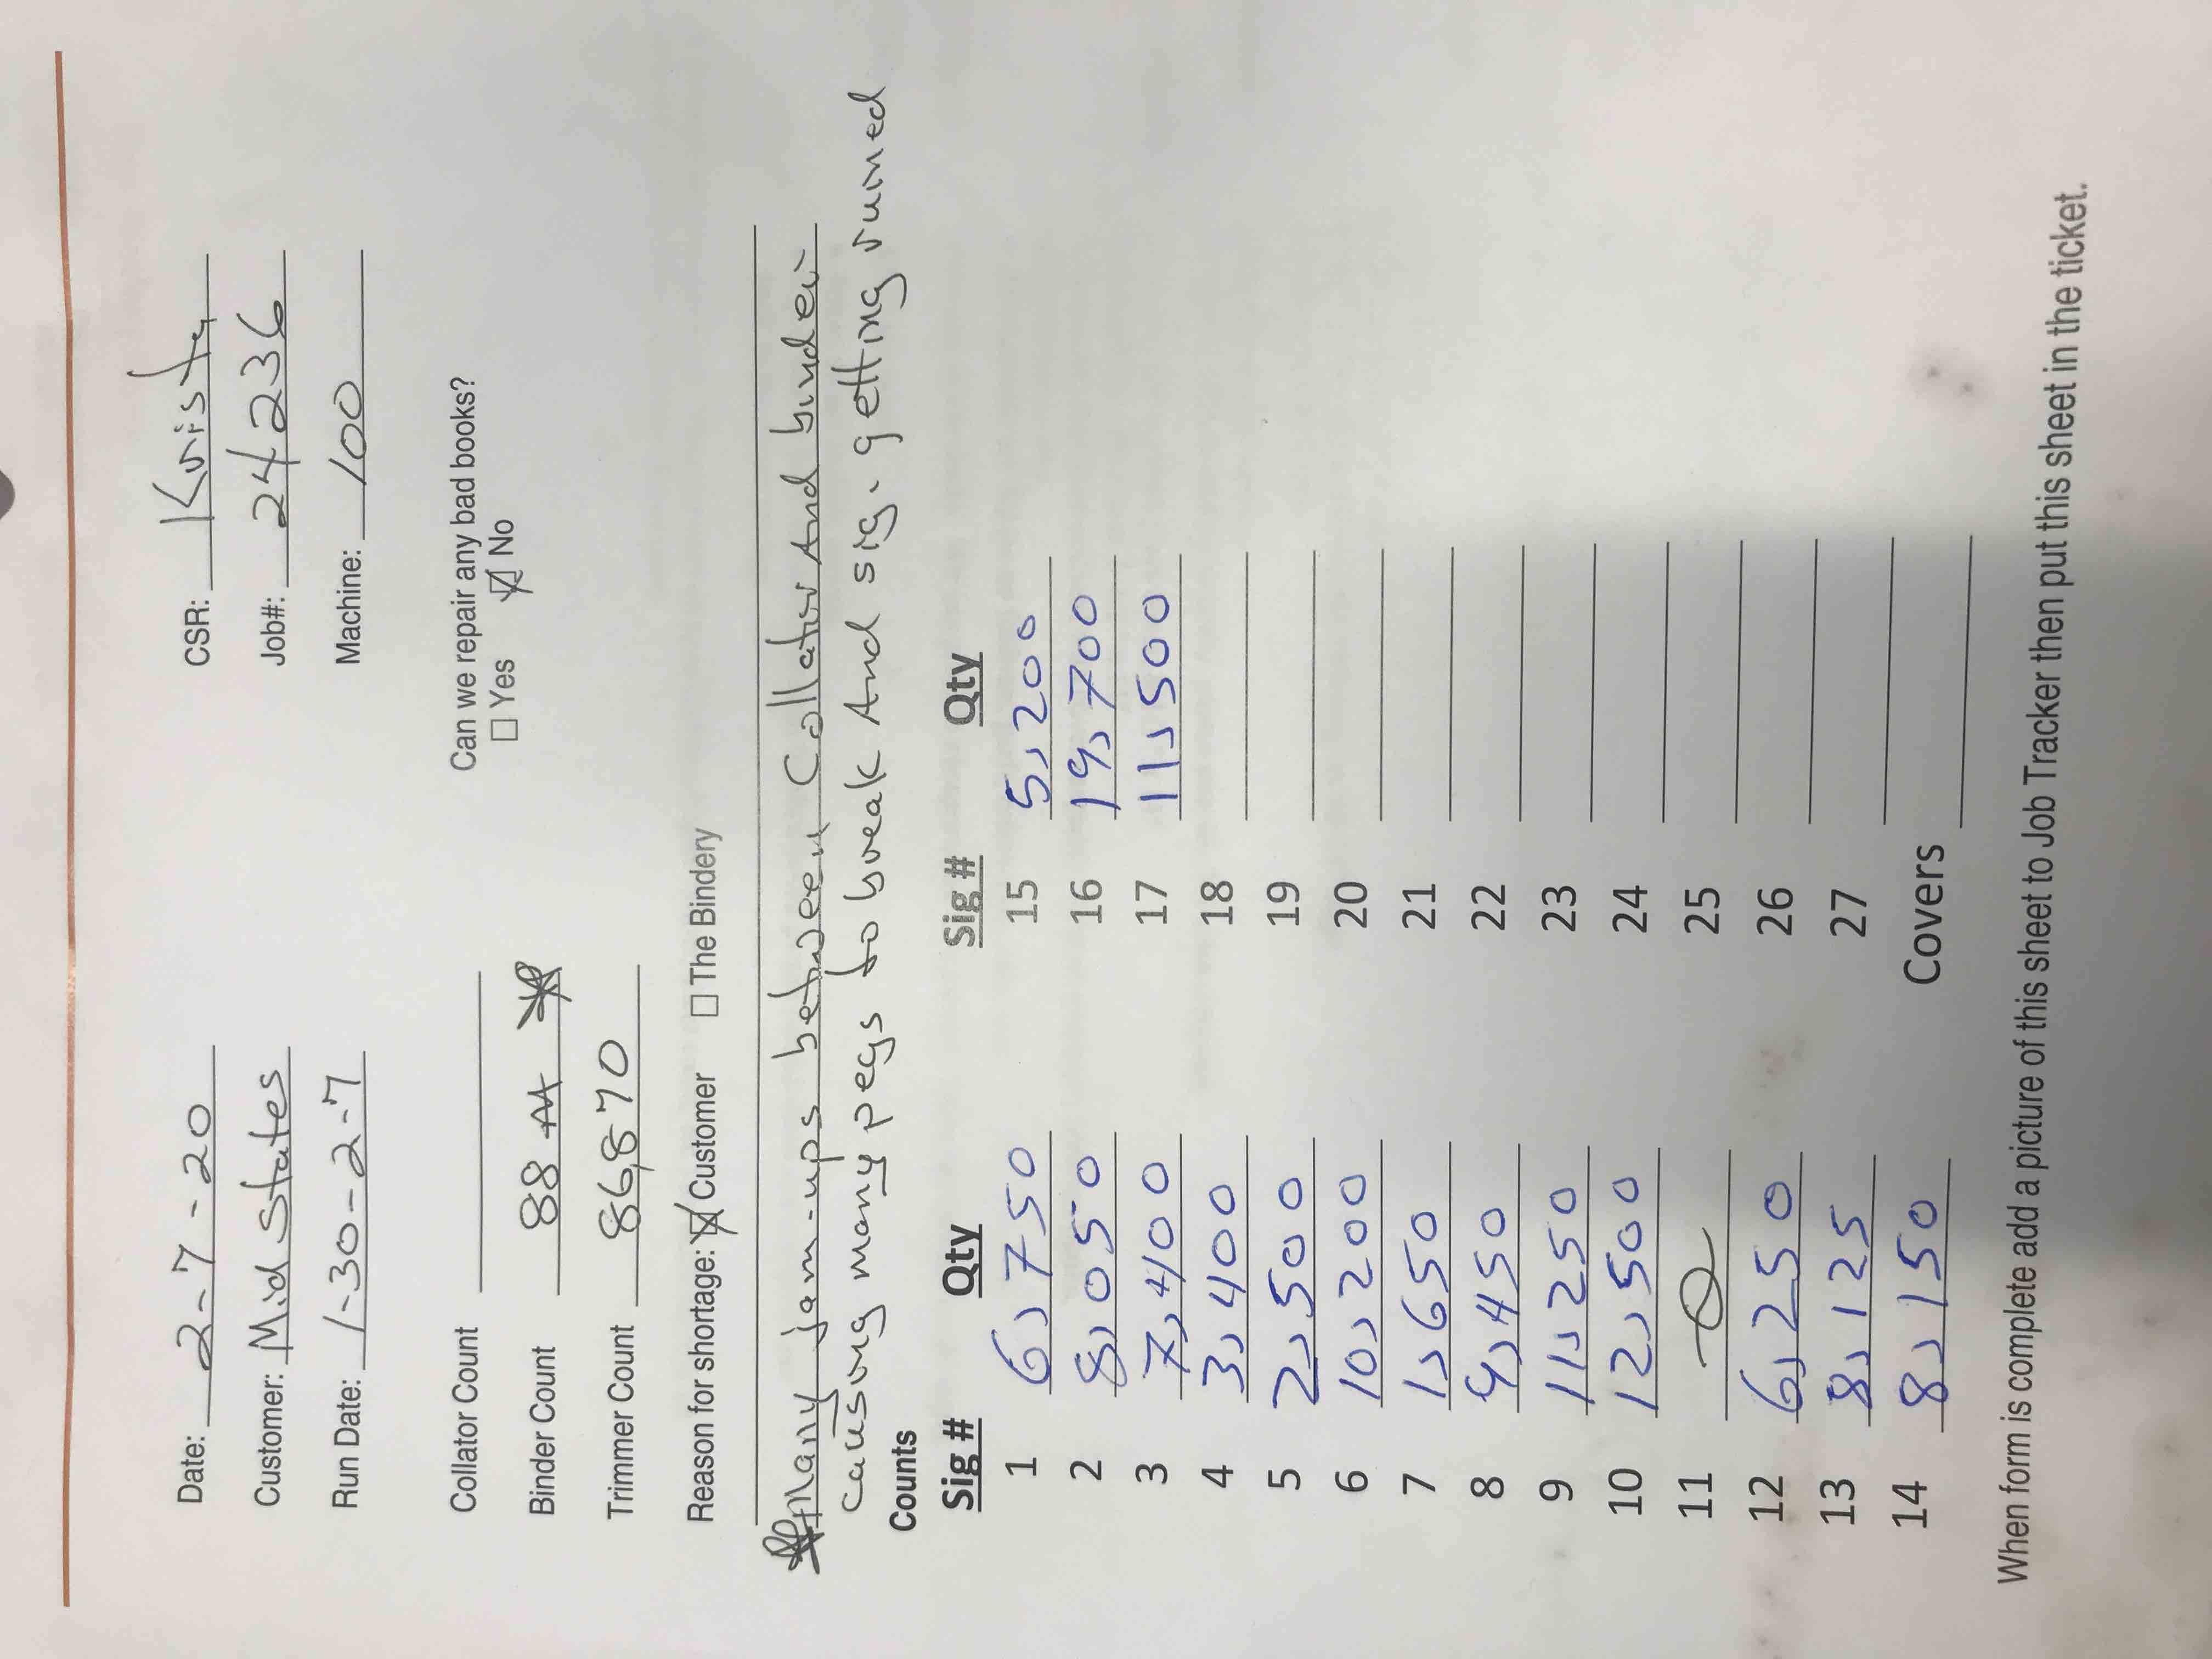 Date: 2-7-20 CSR: Kristy
Customer: Mid States Job#: 24236
Run Date: 1-30-2-7 Machine: 100
Collator Count Can we repair any bad books?
☐ Yes ☒ No
Binder Count 88 M
Trimmer Count 86,870
Reason for shortage: ☒ Customer ☐ The Bindery
* Many jam-ups between Collator And binder
causing many pegs to break And sig. getting ruined
Counts
Sig # Qty Sig # Qty
1 6,750 15 5,200
2 8,050 16 19,700
3 7,400 17 11,500
4 3,400 18
5 2,500 19
6 10,200 20
7 1,650 21
8 9,450 22
9 11,250 23
10 12,500 24
11 0 25
12 6,250 26
13 8,125 27
14 8,150 Covers
When form is complete add a picture of this sheet to Job Tracker then put this sheet in the ticket.